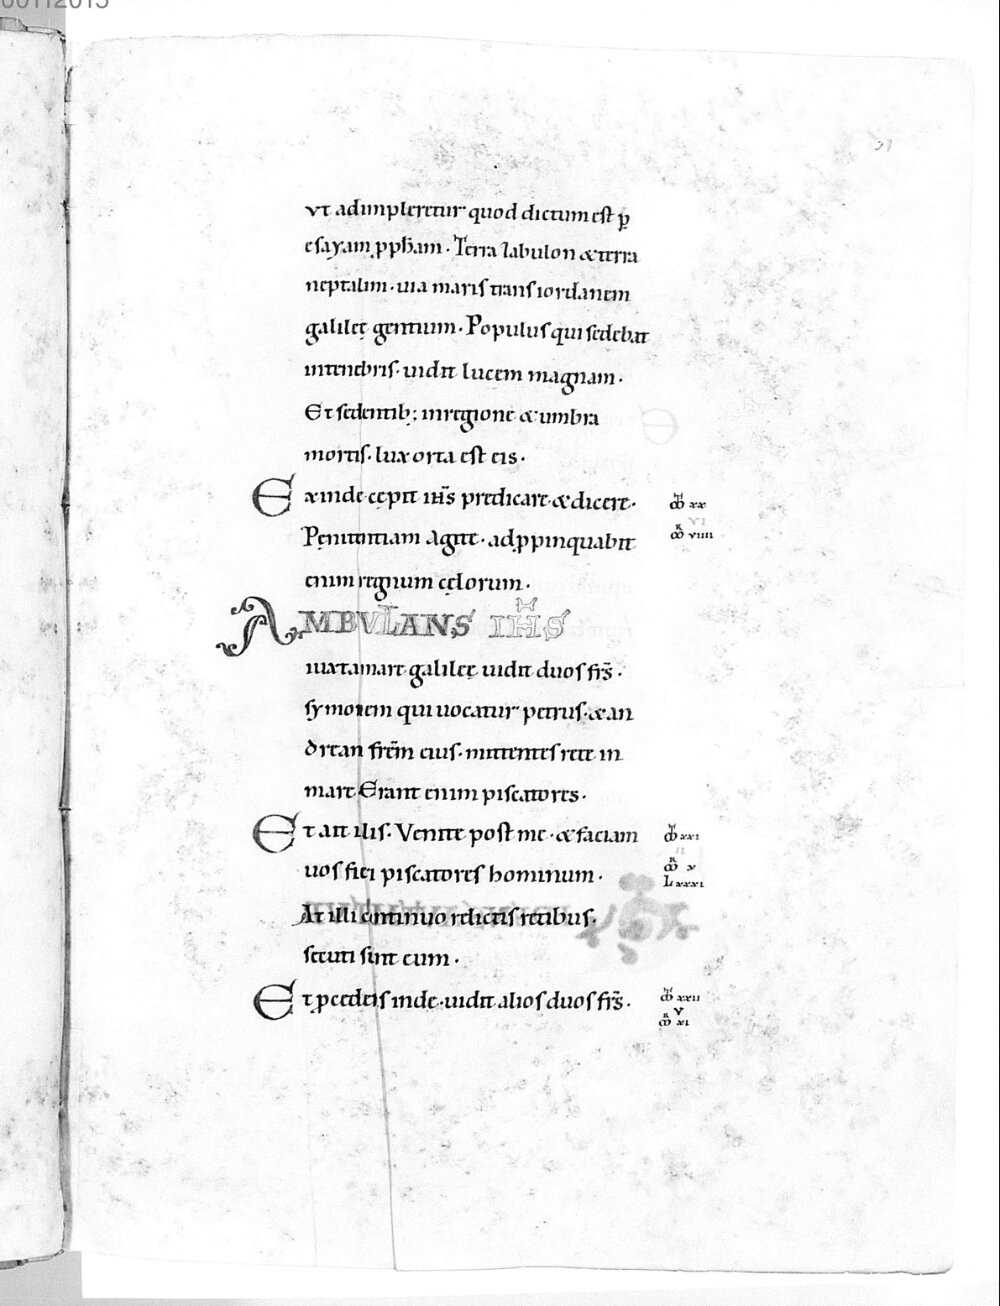 00112015
31
vt adimpleretur quod dictum est ꝑ
esayam ꝓph̄am · Terra zabulon & terra
neptalim · uia maris trans iordanem
galileę gentium · Populus qui sedebat
intenebris · uidit lucem magnam ·
Et sedentib; inregione & umbra
mortis · lux orta est eis ·
Exinde cępit ih̄s predicare & dicere · xx
Pęnitentiam Agite · adꝓpinquabit VI viiii
enim regnum cęlorum ·
AMBVLANS IH̄S
iuxtamare galileę uidit duos fr̄s ·
symonem qui uocatur petrus · & an
drean fr̄em eius · mittentes rete in
mare Erant enim piscatores ·
Et ait illis · Venite post me · & faciam xxi
uos fieri piscatores hominum · II x
Lxxxi
At illi continuo relictis retibus ·
secuti sunt eum ·
Et ꝓcedens inde · uidit alios duos fr̄s · xxii
V
xi